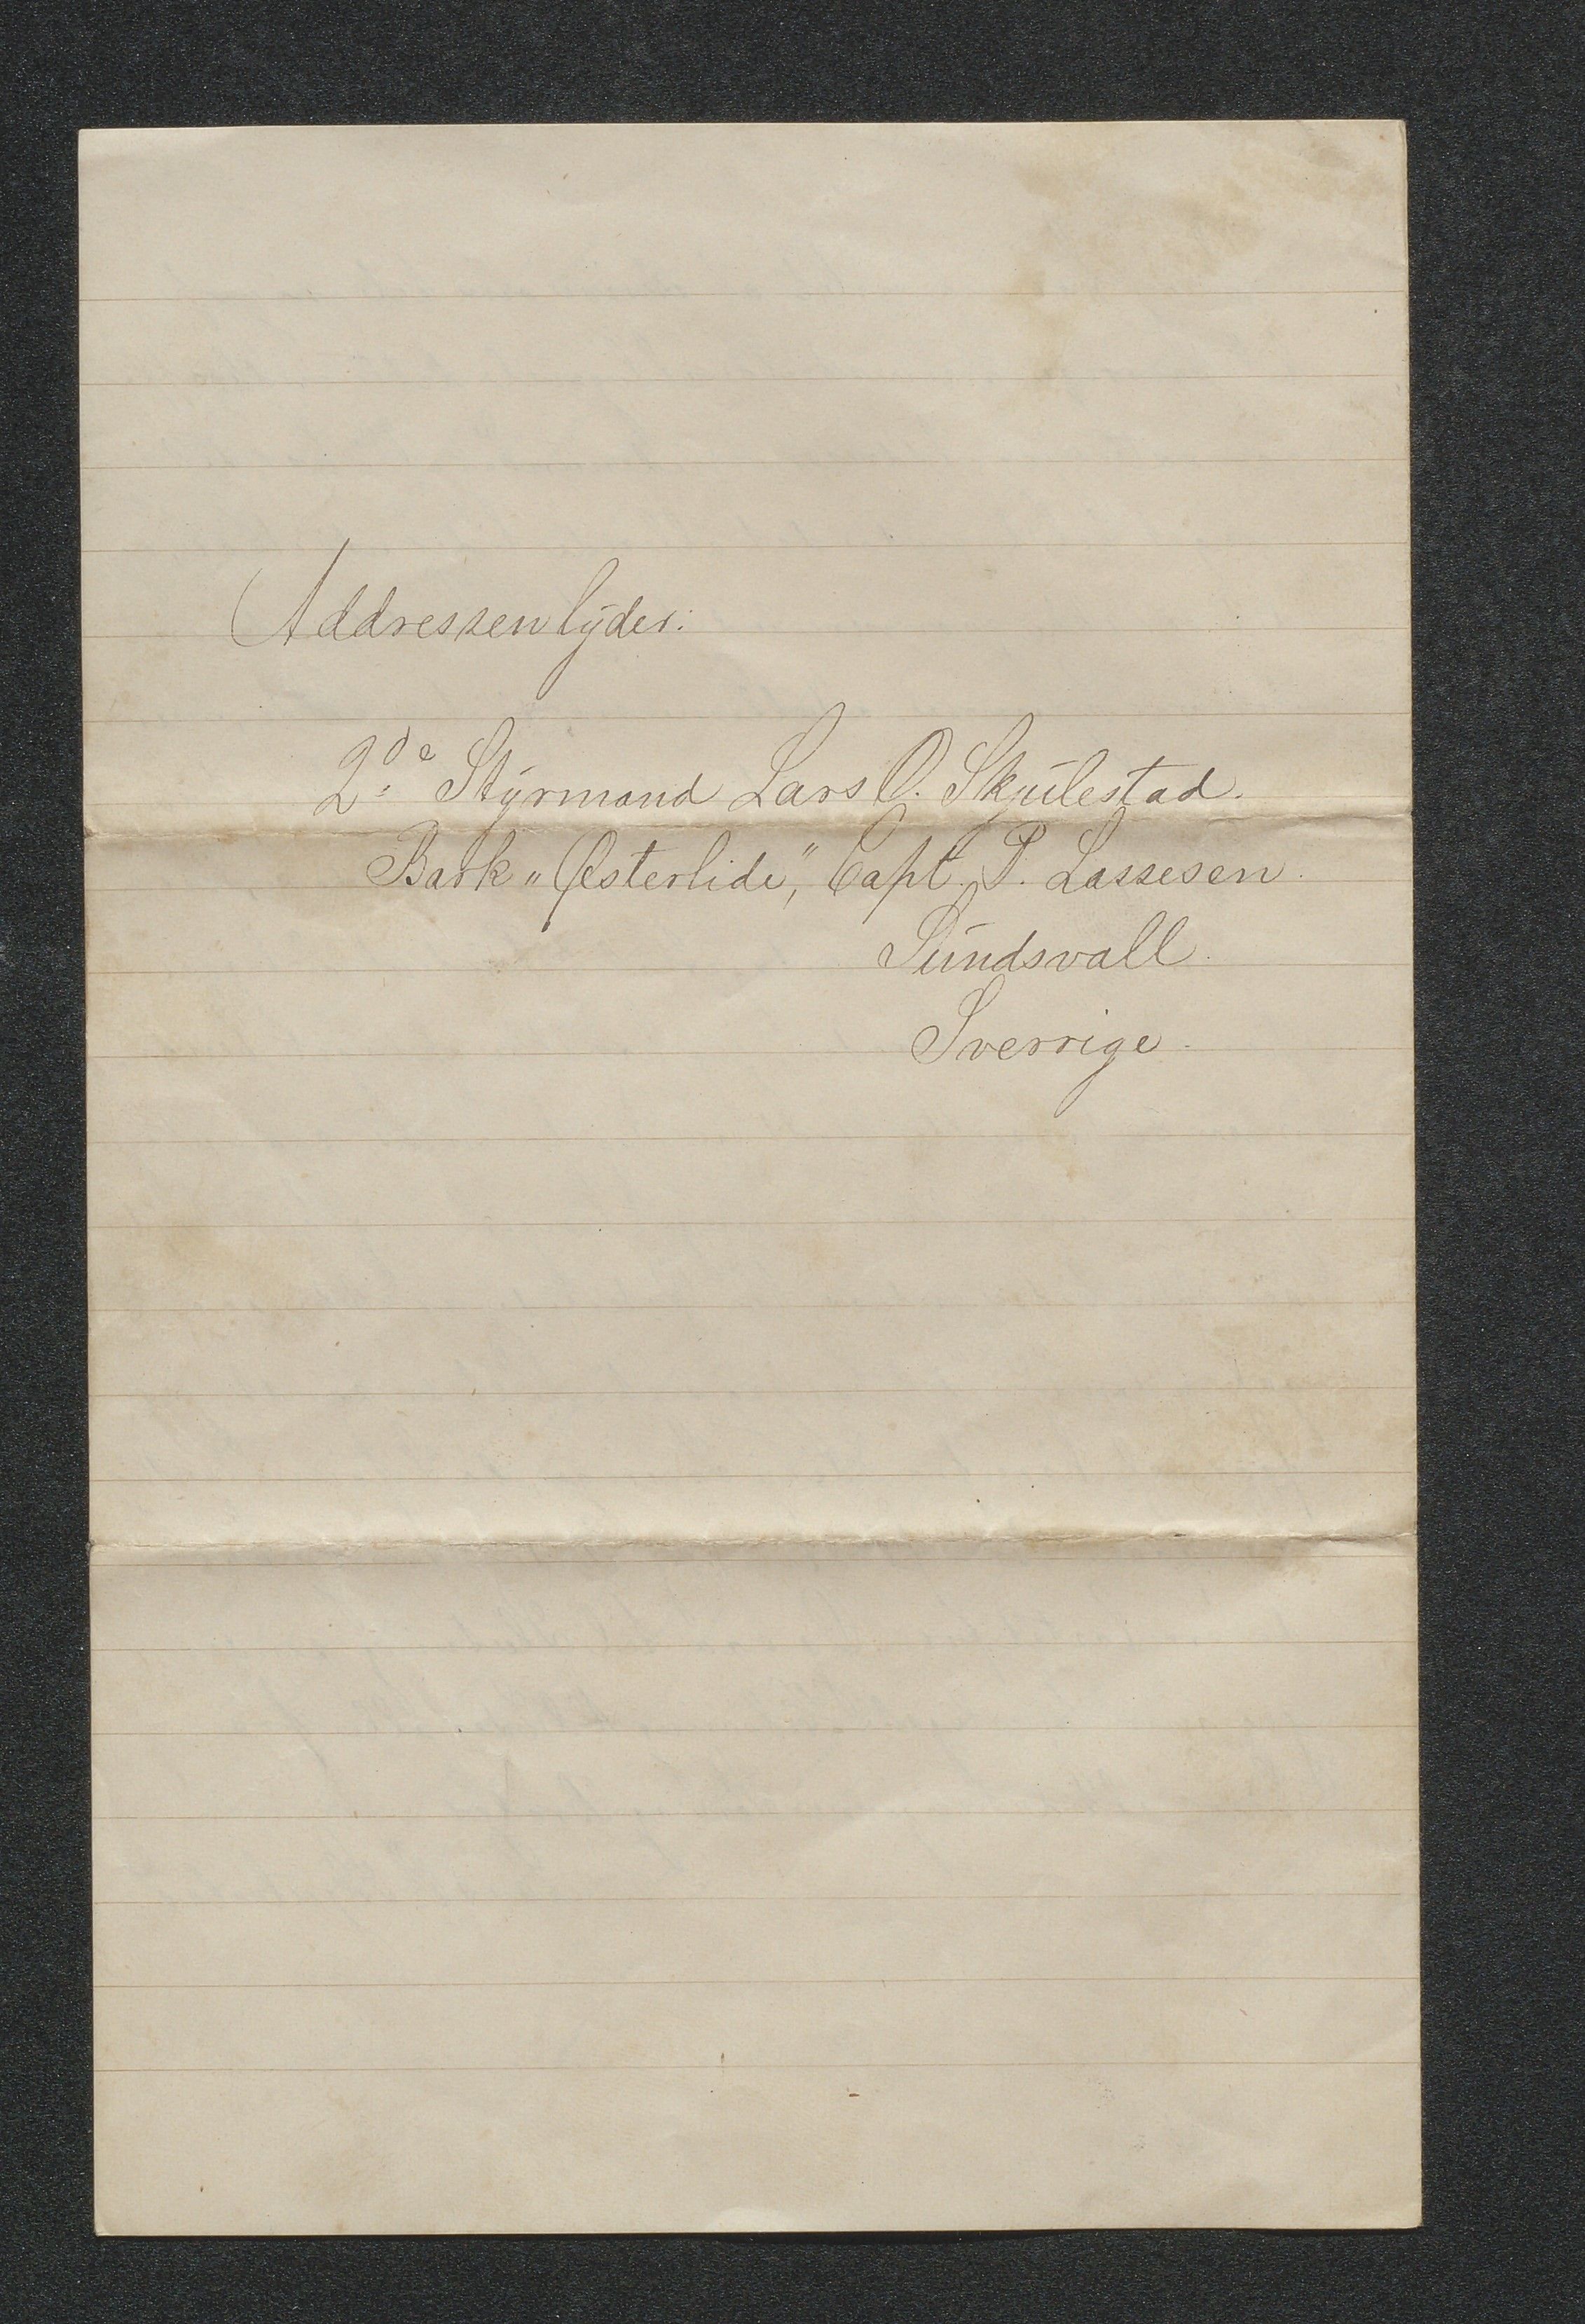 Addressen lyder:
2de Styrmand Lars O. Skjulestad.
Bark „Østerlide", Capt. P. Lassesen.
Sundsvall.
Sverrige.